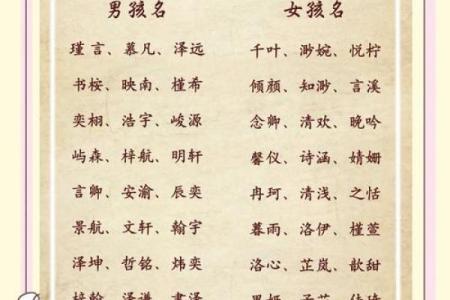 男孩名
瑾言、慕凡、泽远
书桉、映南、槿希
奕栩、浩宇、峻源
屿森、梓航、明轩
言卿、安渝、辰奕
景航、文轩、翰宇
泽坤、哲铭、炜奕
女孩名
千叶、渺婉、悦柠
倾颜、知渺、言溪
念卿、清欢、晚吟
馨仪、诗涵、婧姗
冉珂、清浅、之恬
暮雨、洛伊、槿萱
洛心、芷岚、歆甜